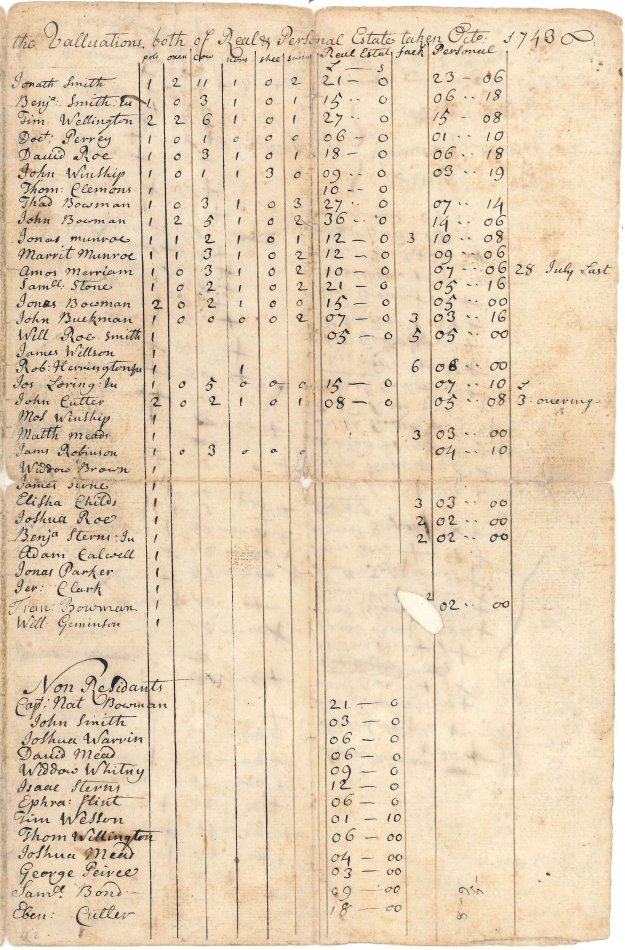 the Valluations, both of Real & Personal Estate taken Octo. 1743
pols oxen Cow hors shee swine Real Estat fack Personal
£ s
Jonath Smith 1 2 11 1 0 2 21 — 0 23 - 06
Benja: Smith: Ju 1 0 3 1 0 1 15 ·· 0 06 ·· 18
Tim Wellington 2 2 6 1 0 1 27 ·· 0 15 - 08
Doct: Perrey 1 0 1 0 0 0 06 — 0 01 ·· 10
David Roe 1 0 3 1 0 1 18 — 0 06 ·· 18
John Winship 1 0 1 1 3 0 09 ·· 0 03 ·· 19
Thom: Clemons 1 10 — 0
Thad Bowman 1 0 3 1 0 3 27 ·· 0 07 ·· 14
John Bowman 1 2 5 1 0 2 36 ·· 0 14 ·· 06
Jonas munroe 1 1 2 1 0 1 12 — 0 3 10 ·· 08
Marrit Munroe 1 1 3 1 0 2 12 — 0 09 ·· 06
Amos Merriam 1 0 3 1 0 2 10 — 0 07 ·· 06 28 July Last
Samll. Stone 1 0 2 1 0 2 21 — 0 05 ·· 16
Jonas Bowman 2 0 2 1 0 0 15 — 0 05 ·· 00
John Buckman 1 0 0 0 0 2 07 — 0 3 03 ·· 16
Will Roe Smith 1 05 — 0 5 05 ·· 00
James Willson 1
Rob: Herrington Ju 1 1 6 06 ·· 00
Jos Loring: Ju 1 0 5 0 0 0 15 — 0 07 ·· 10
John Cutter 2 0 2 1 0 1 08 — 0 05 ·· 08 3 ouering
Mos Winship 1
Matth meads 1 3 03 ·· 00
Jams Robinson 1 0 3 0 0 0 04 ·· 10
Widdow Brown 1
James Stone 1
Elisha Childs 1 3 03 ·· 00
Joshua Roe 1 2 02 ·· 00
Benja Sterns: Ju 1 2 02 ·· 00
Adam Calwell 1
Jonas Parker 1
Jer: Clark 1
Fran: Bowman 1 2 02 ·· 00
Will Geminson 1
Non Residants
Capt: Nat Bowman 21 — 0
John Smith 03 — 0
Joshua Warrin 06 — 0
David Mead 06 — 0
Widdow Whitny 09 — 0
Isaac Sterns 12 — 0
Ephra: Flint 06 — 0
Tim Wesson 01 — 10
Thom Willington 06 — 00
Joshua Mead 04 — 00
George Peirce 03 — 00
Samll. Bond — 09 — 00
Eben: Cutler 18 — 00